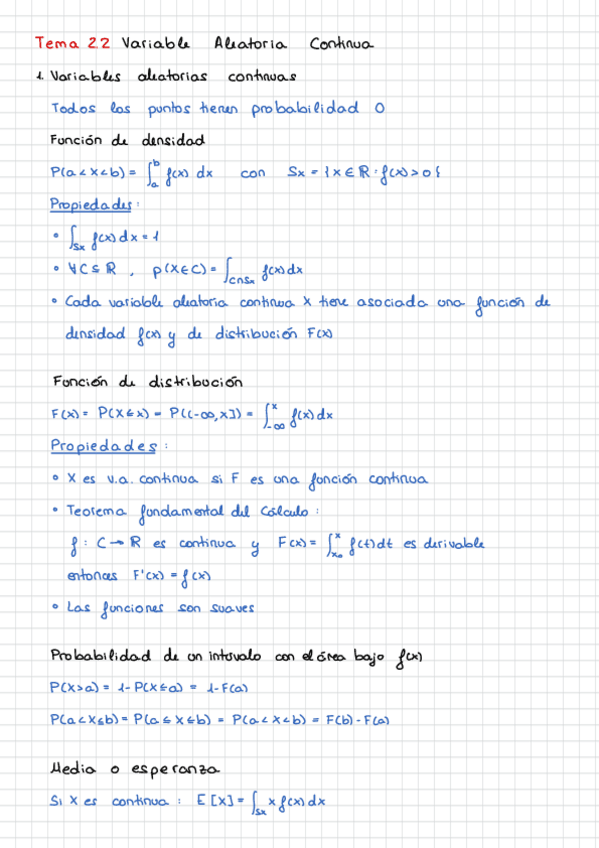 Tema 2.2 Variable Aleatoria Continua
1. Variables aleatorias continuas
Todos los puntos tienen probabilidad 0
Función de densidad
P(a < X < b) = ∫_a^b f(x) dx con Sx = {x ∈ R : f(x) > 0}
Propiedades:
• ∫_Sx f(x) dx = 1
• ∀C ⊆ R, p(X ∈ C) = ∫_C∩Sx f(x) dx
• Cada variable aleatoria continua X tiene asociada una función de
densidad f(x) y de distribución F(x)
Función de distribución
F(x) = P(X ≤ x) = P((-∞, x]) = ∫_-∞^x f(x) dx
Propiedades:
• X es v.a. continua si F es una función continua
• Teorema fundamental del Cálculo:
f: C → R es continua y F(x) = ∫_x₀^x f(t) dt es derivable
entonces F'(x) = f(x)
• Las funciones son suaves
Probabilidad de un intervalo con el área bajo f(x)
P(X > a) = 1 - P(X ≤ a) = 1 - F(a)
P(a < X ≤ b) = P(a ≤ X ≤ b) = P(a < X < b) = F(b) - F(a)
Media o esperanza
Si X es continua: E[X] = ∫_Sx x f(x) dx